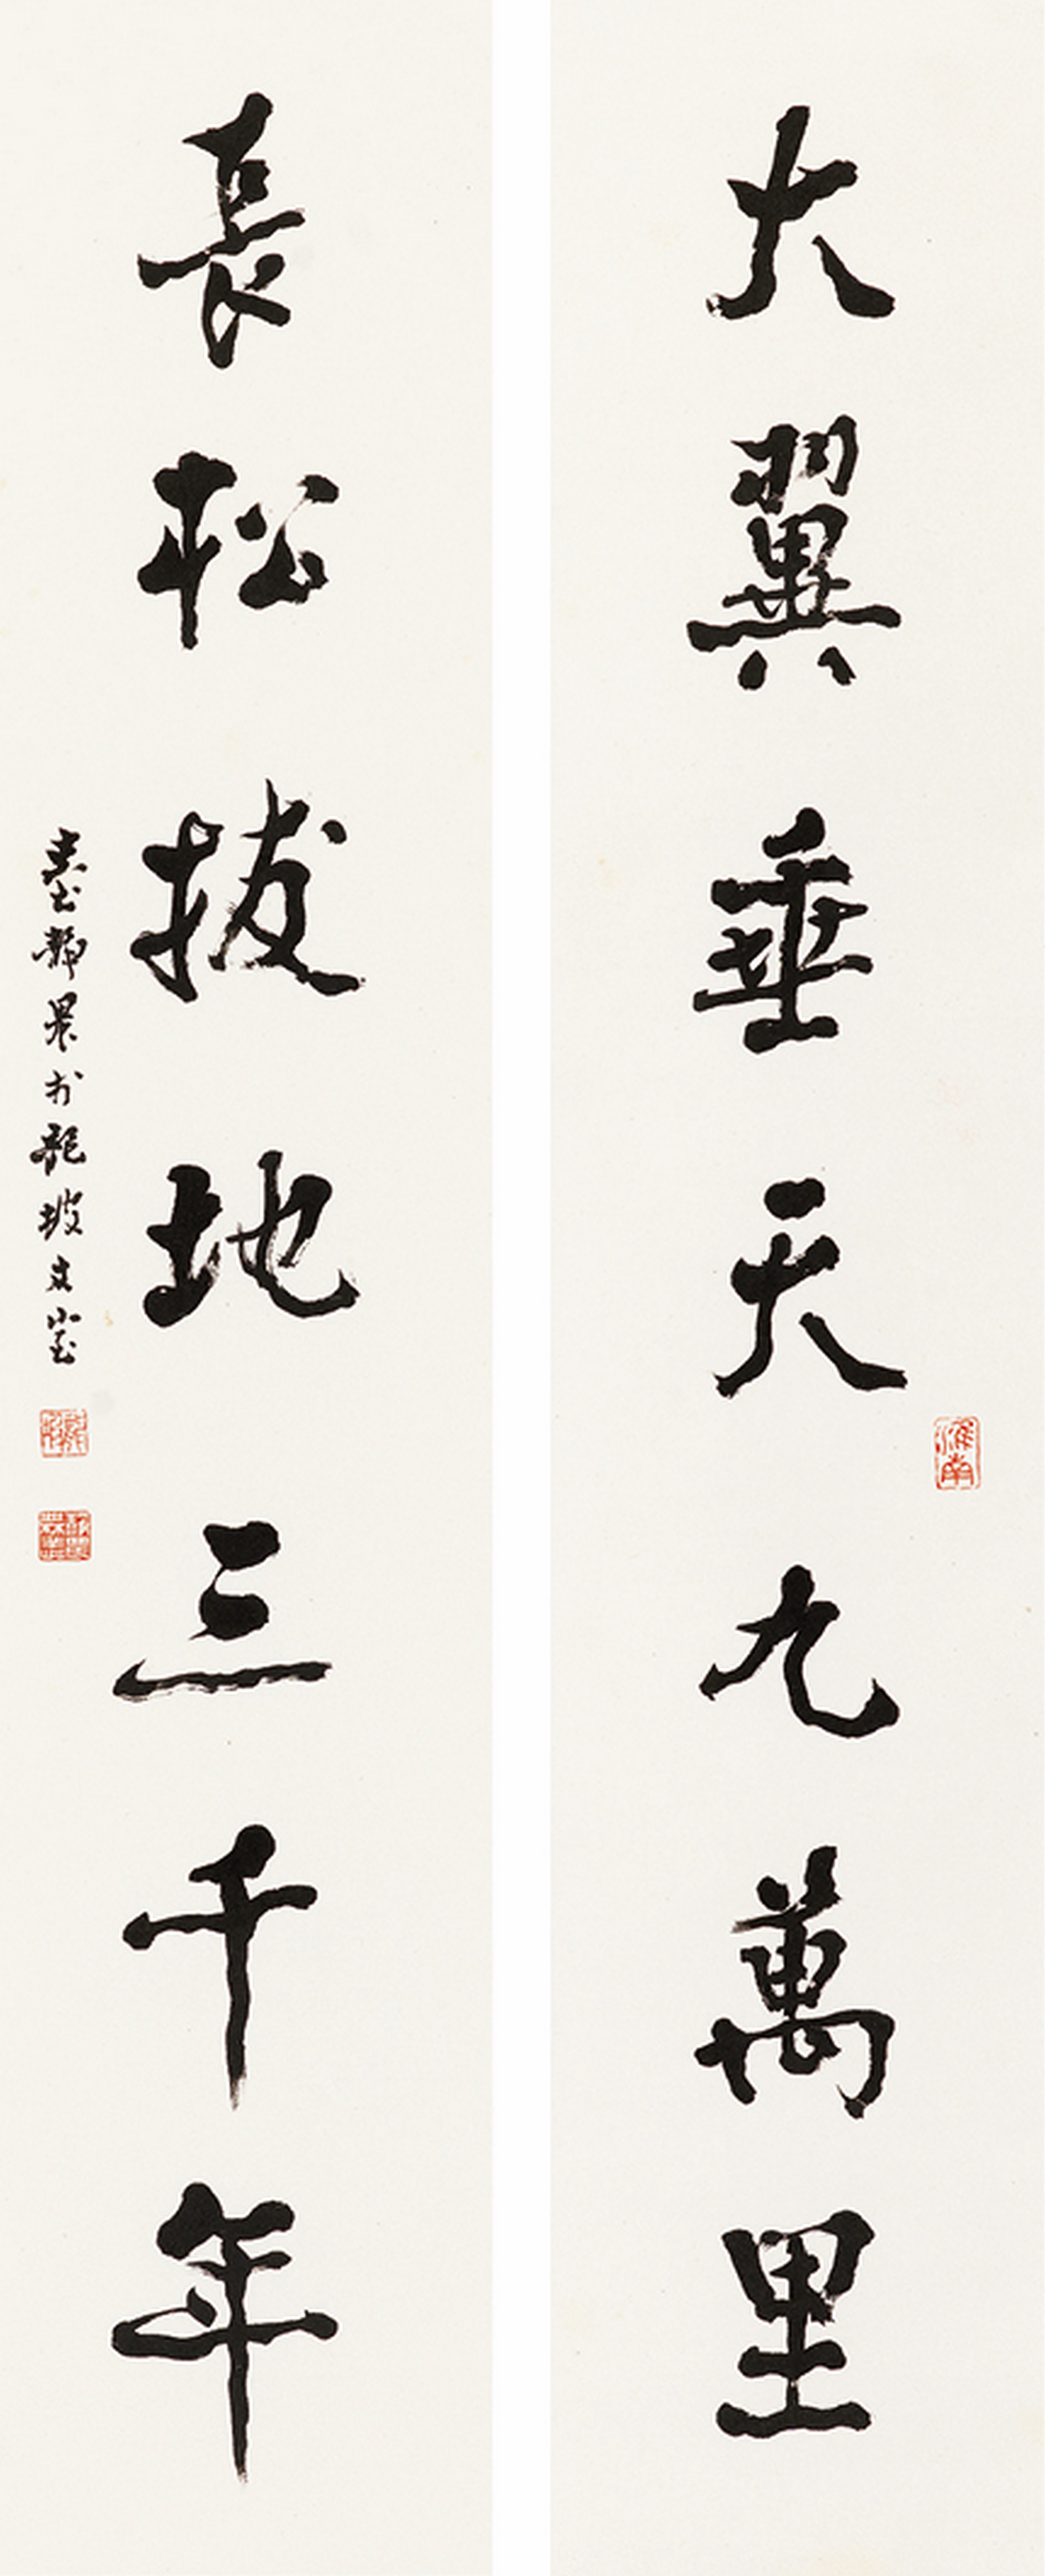 大翼垂天九萬里
長松拔地三千年
臺靜農於龍坡丈室
淮南